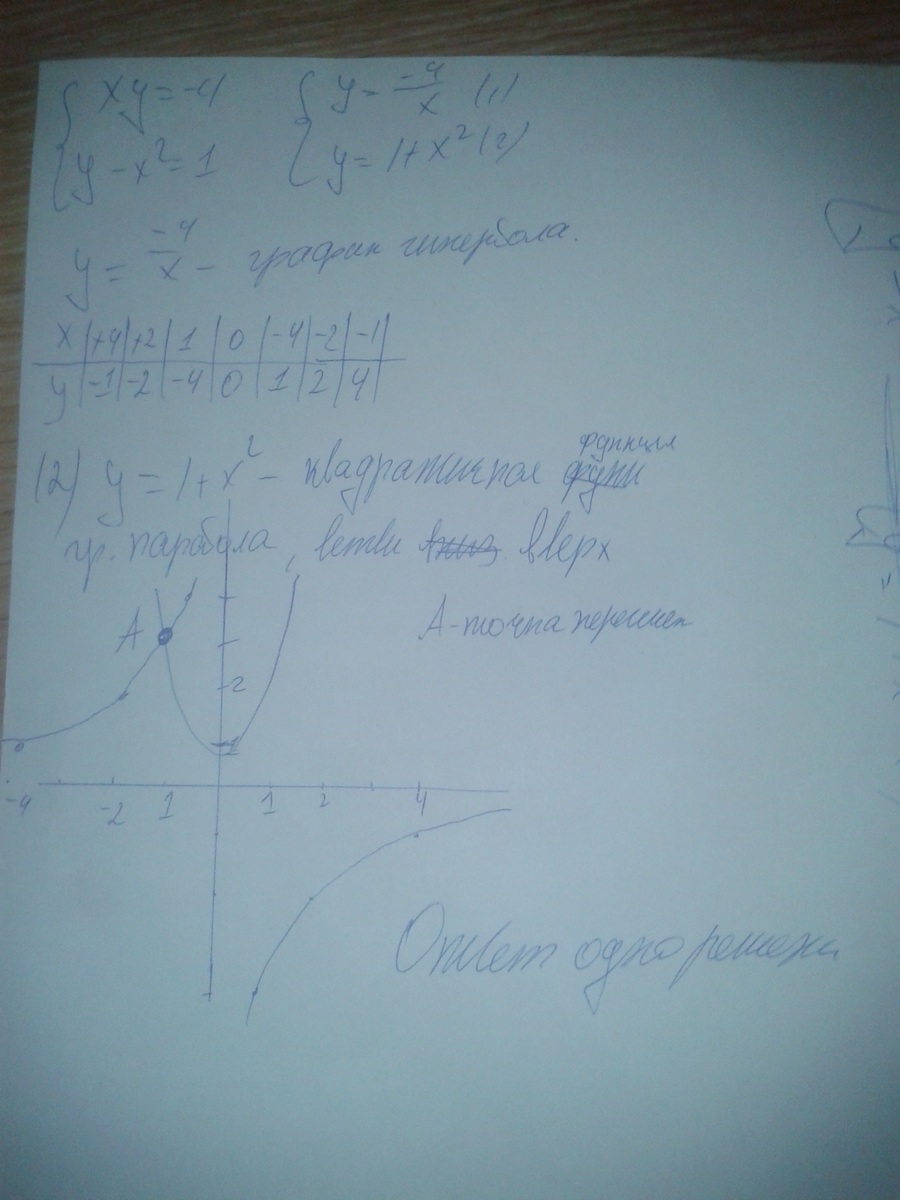 { xy = -4 { y = -4/x (1)
{ y - x² = 1 { y = 1 + x² (2)
y = -4/x - график гипербола.
x | +4 | +2 | 1 | 0 | -4 | -2 | -1 |
y | -1 | -2 | -4 | 0 | 1 | 2 | 4 |
(2) y = 1 + x² - квадратичная функция
гр. парабола, ветви вверх
A A-точка пересеч
2
1
-4 -2 1 1 2 4
Ответ одно решени